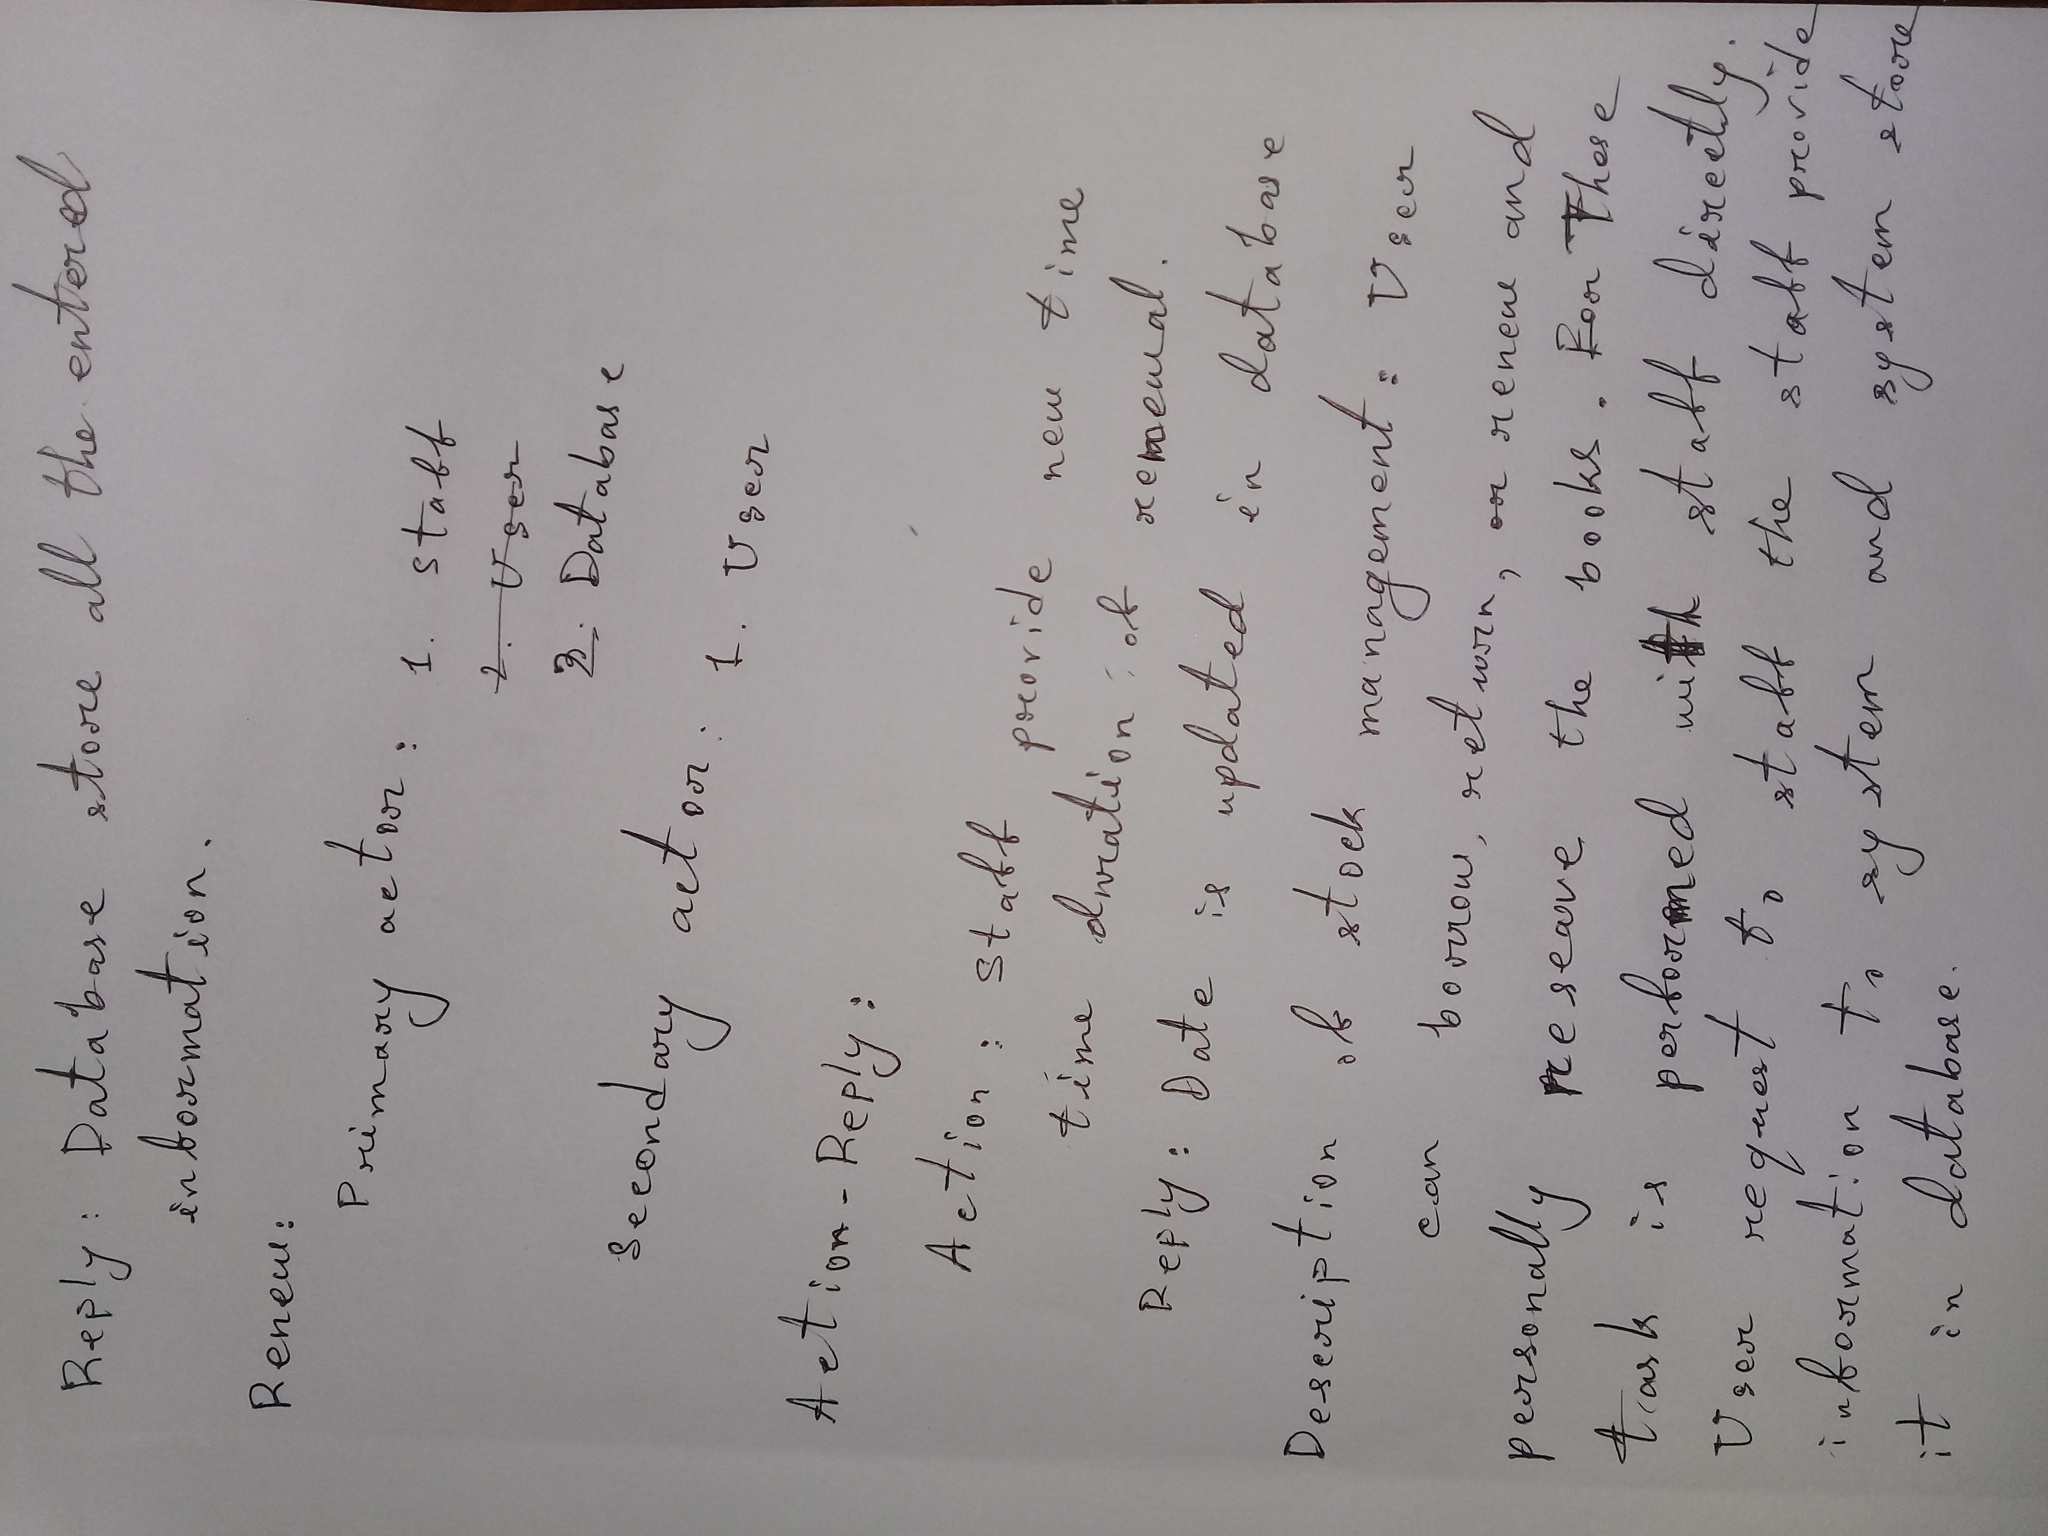 Reply: Database store all the entered
information.
Renew:
Primary actor: 1. Staff
2. User
2. Database
Secondary actor: 1. User
Action-Reply:
Action: Staff provide new time
time duration of renewal.
Reply: Date is updated in database
Description of stock management: User
can borrow, return, or renew and
personally reserve the books. For These
task is performed with staff directly.
User request to staff the staff provide
information to system and system store
it in database.